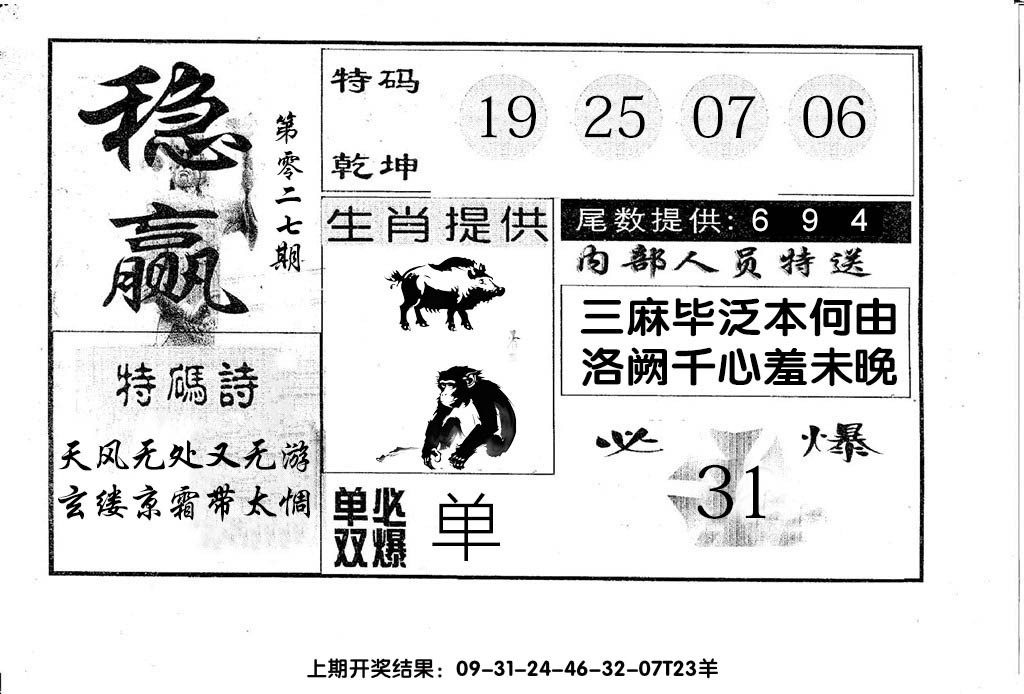 稳赢
第零二七期
特码
乾坤
19 25 07 06
生肖提供
尾数提供: 6 9 4
内部人员特送
三麻毕泛本何由
洛阙千心羞未晚
特碼詩
天风无处又无游
玄缕京霜带太惆
必爆
31
单双
必爆
单
上期开奖结果：09-31-24-46-32-07T23羊